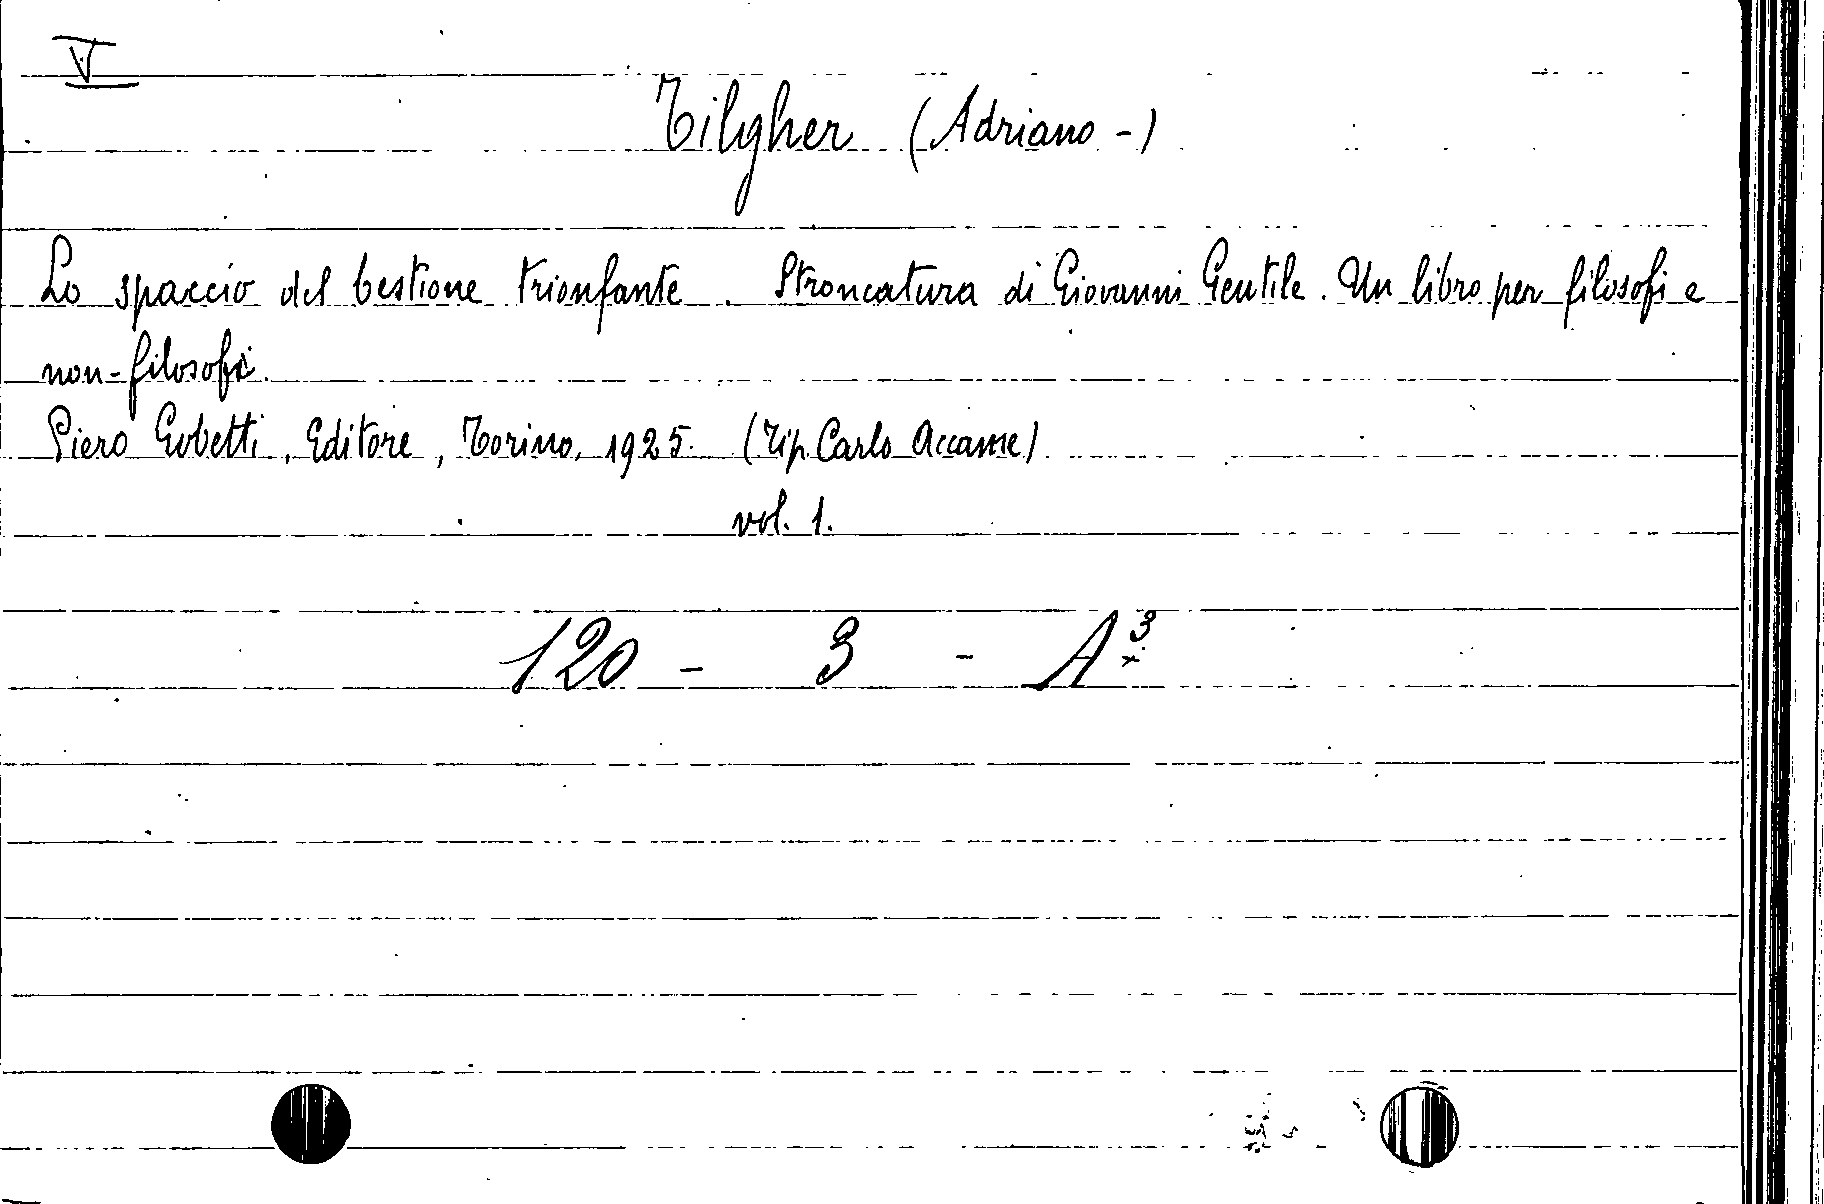 V
Tilgher (Adriano -)
Lo spaccio del bestione trionfante. Stroncatura di Giovanni Gentile. Un libro per filosofi e
non-filosofi.
Piero Gobetti, Editore, Torino, 1925. (Tip. Carlo Accame)
vol. 1.
120 - 3 - A³